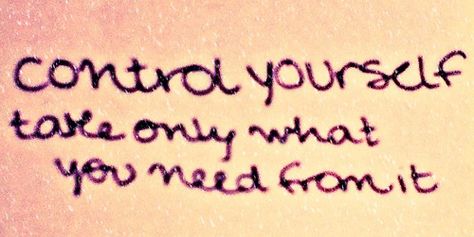 control yourself
take only what
you need from it